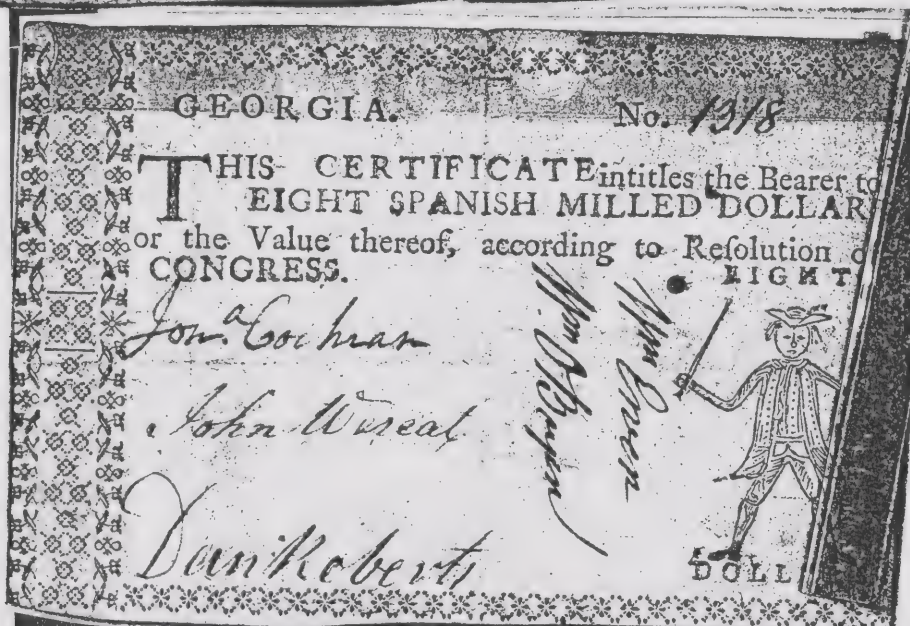 GEORGIA. No. 1318
THIS CERTIFICATE intitles the Bearer to
EIGHT SPANISH MILLED DOLLAR
or the Value thereof, according to Reſolution o
CONGRESS.
EIGHT
Jonᵃ Cochran
John Wereat
Danl Roberts
Wm O Bryen
Wm Ewen
DOLL